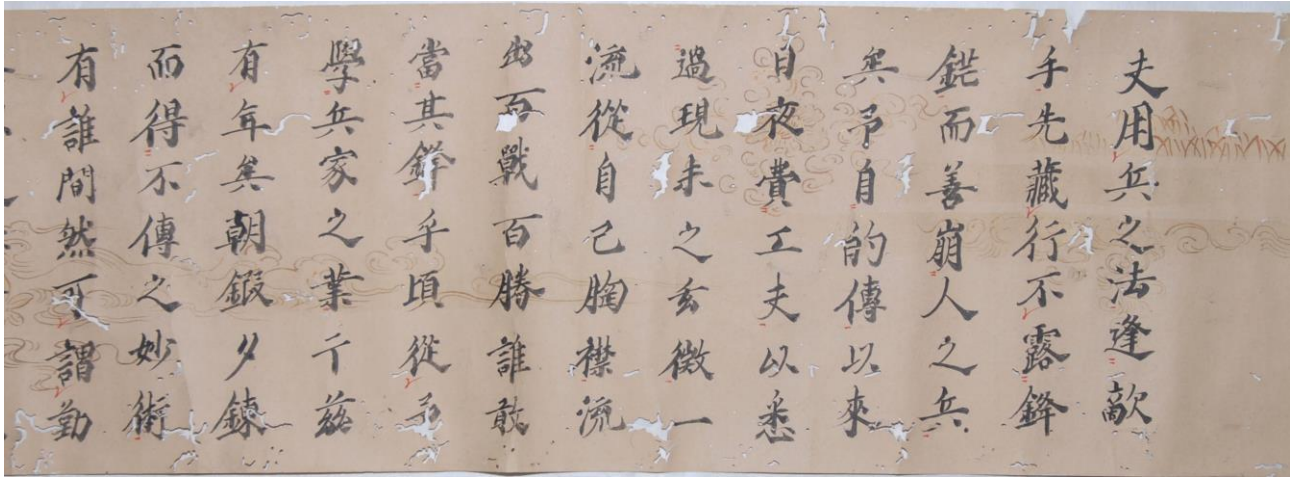 夫用兵之法逢敵
手先藏行不露鋒
鋩而善崩人之兵
矣予自的傳以來
日夜費工夫以悉
過現未之玄微一
流從自己胸襟流
出百戰百勝誰敢
當其鋒乎頃從予
學兵家之業于茲
有年矣朝鍛夕鍊
而得不傳之妙術
有誰間然可謂勤